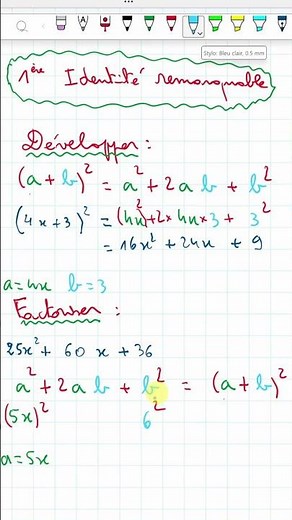 Stylo: Bleu clair, 0.5 mm
1ère Identité remarquable
Développer :
(a + b)² = a² + 2 a b + b²
(4x + 3)² = (4x)² + 2 × 4x × 3 + 3²
= 16x² + 24x + 9
a = 4x b = 3
Factoriser :
25x² + 60 x + 36
a² + 2 a b + b² = (a + b)²
(5x)² 6²
a = 5x